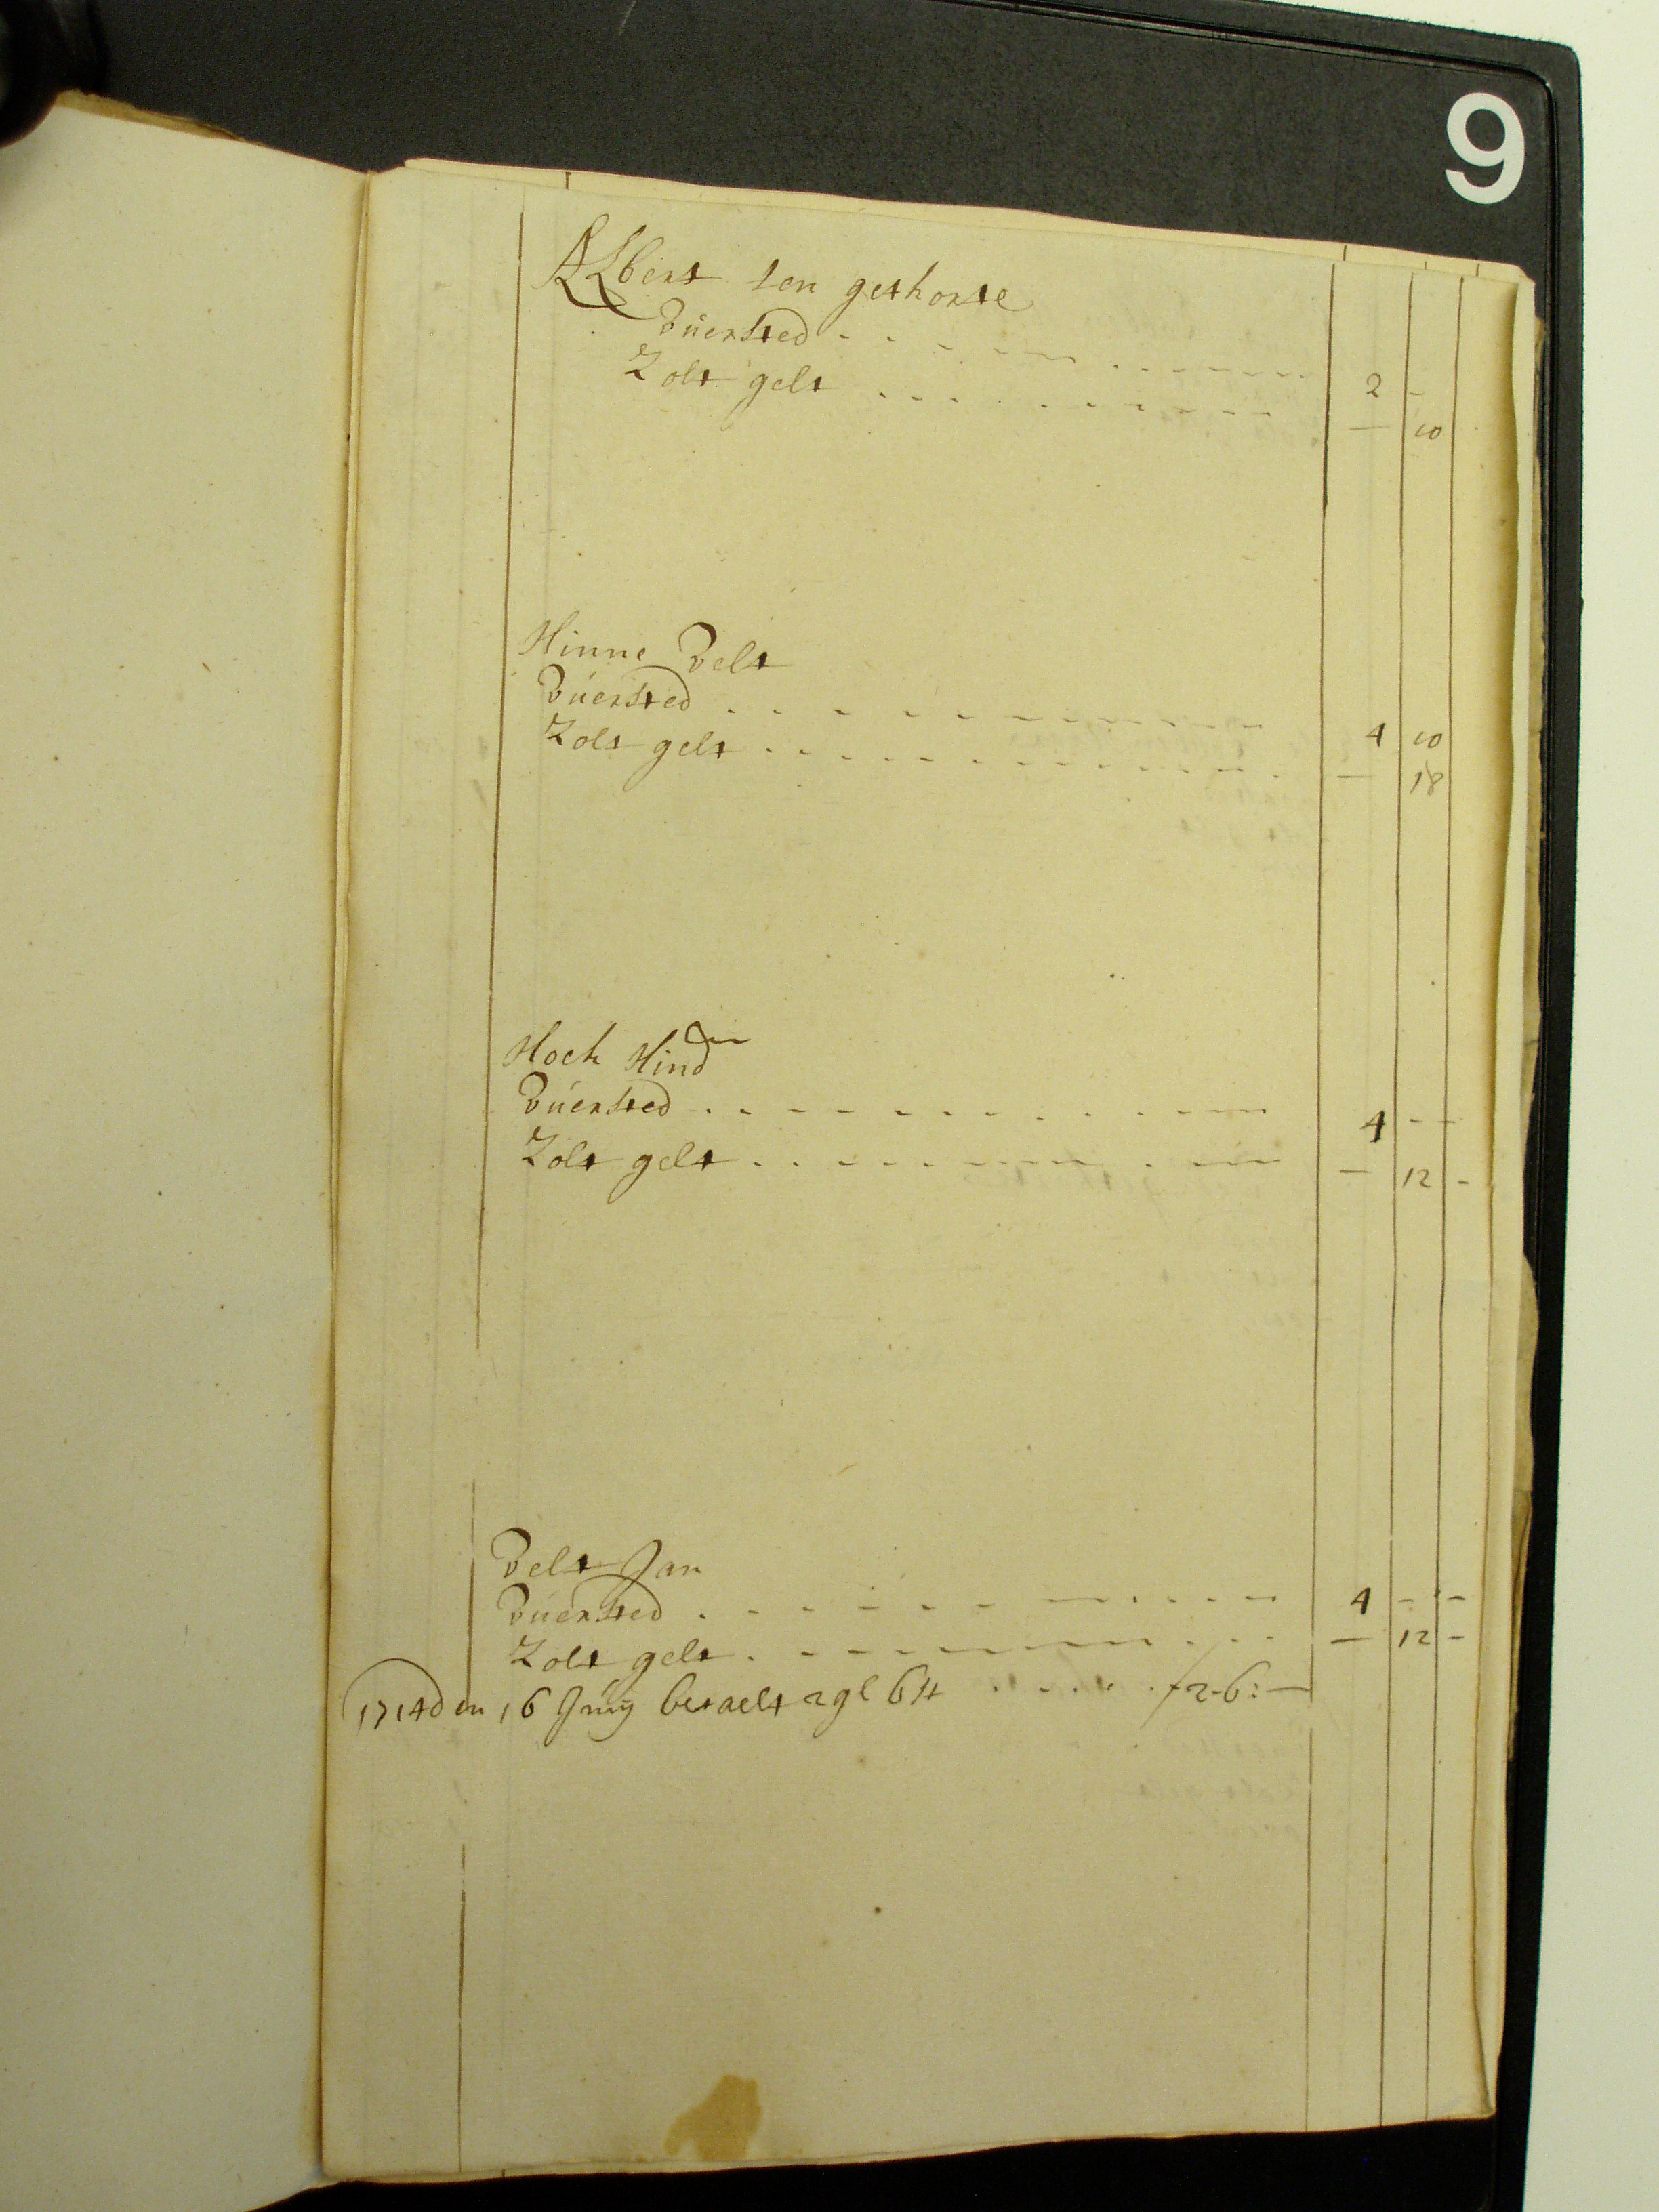 9
Albert ten gethorte
Vüersted 2 -
Zolt gelt — 10
Hinne Velt
Vüersted 4 10
Zolt gelt — 18
Hoek Hind
Vüersted 4 - -
Zolt gelt — 12 -
Velt Jan
Vüersted 4 - -
Zolt gelt — 12 -
1714 den 16 Juny betaelt 2 gl 6 st f 2-6:—